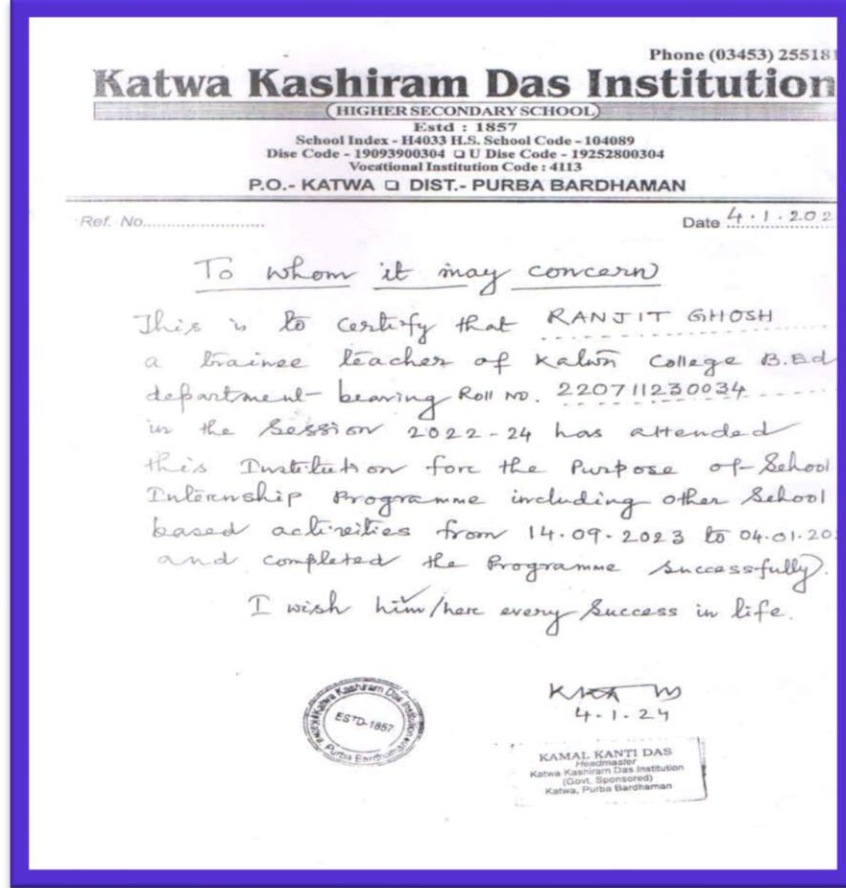 Phone (03453) 255181
Katwa Kashiram Das Institution
(HIGHER SECONDARY SCHOOL)
Estd : 1857
School Index - H4033 H.S. School Code - 104089
Dise Code - 19093900304 ❑ U Dise Code - 19252800304
Vocational Institution Code : 4113
P.O.- KATWA ❑ DIST.- PURBA BARDHAMAN
Ref. No.
Date 4.1.202
To whom it may concern
This is to certify that RANJIT GHOSH
a trainee teacher of Katwa College B.Ed
department bearing Roll No. 220711230034
in the Session 2022-24 has attended
this Institution for the Purpose of School
Internship Programme including other School
based activities from 14.09.2023 to 04.01.20
and completed the Programme successfully.
I wish him/her every success in life.
Katwa Kashiram Das Institution
ESTD-1857
Purba Bardhaman
4.1.24
KAMAL KANTI DAS
Headmaster
Katwa Kashiram Das Institution
(Govt. Sponsored)
Katwa, Purba Bardhaman